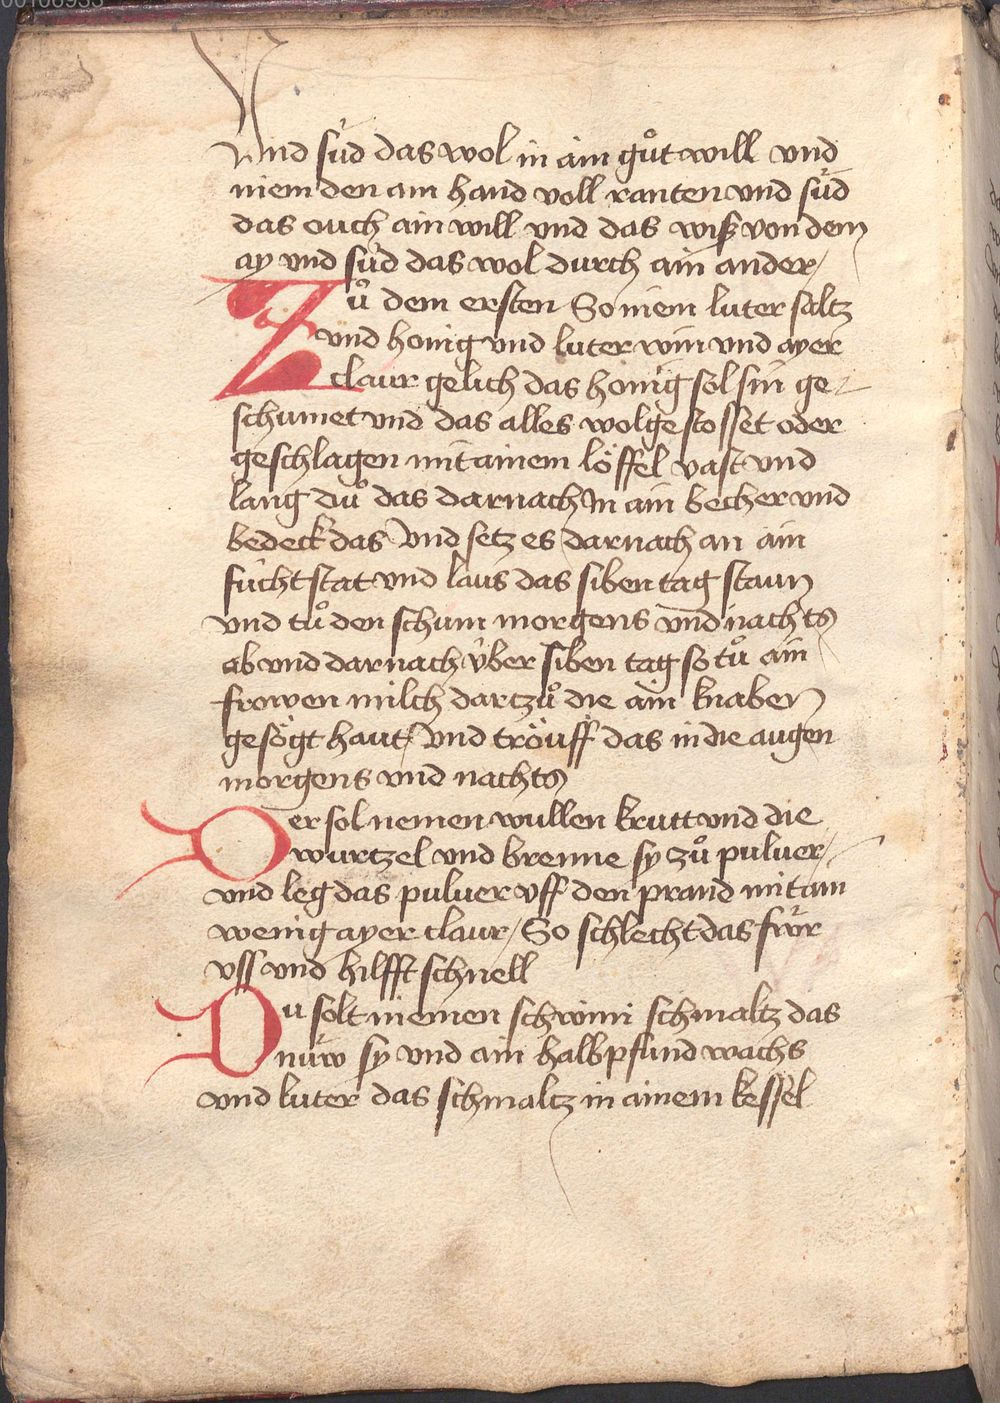 Vnd süd das wol in ain gůt will vnd
niem den ain hand voll ranten vnd süd
das ouch ain will vnd das wiß von dem
ay vnd süd das wol durch ain ander /
Zů dem ersten So niem luter saltz
vnd honig vnd luter win vnd ayer
claur gelich das honig sol sin ge-
schumet vnd das alles wol gestosset oder
geschlagen mit ainem löffel vast vnd
lang Dů das darnach In ain becher vnd
bedeck das Vnd setz es darnach an ain
fücht stat vnd laus das siben tag staun
vnd tů den schum morgens vnd nachts
ab vnd darnach über siben tag so tů ain
frowen milch dartzů die ain knaben
gesögt haut Vnd tröuff das in die augen
morgens vnd nachts
Der sol nemen wullen krutt vnd die
wurtzel vnd brenne sy zů puluer /
vnd leg das puluer vff den prand mit ain
wenig ayer claur / So schlecht das füwr
vss vnd hilfft schnell
Du solt niemen schwini schmaltz das
nüw sy vnd ain halb pfund wachs
vnd luter das schmaltz in ainem kessel